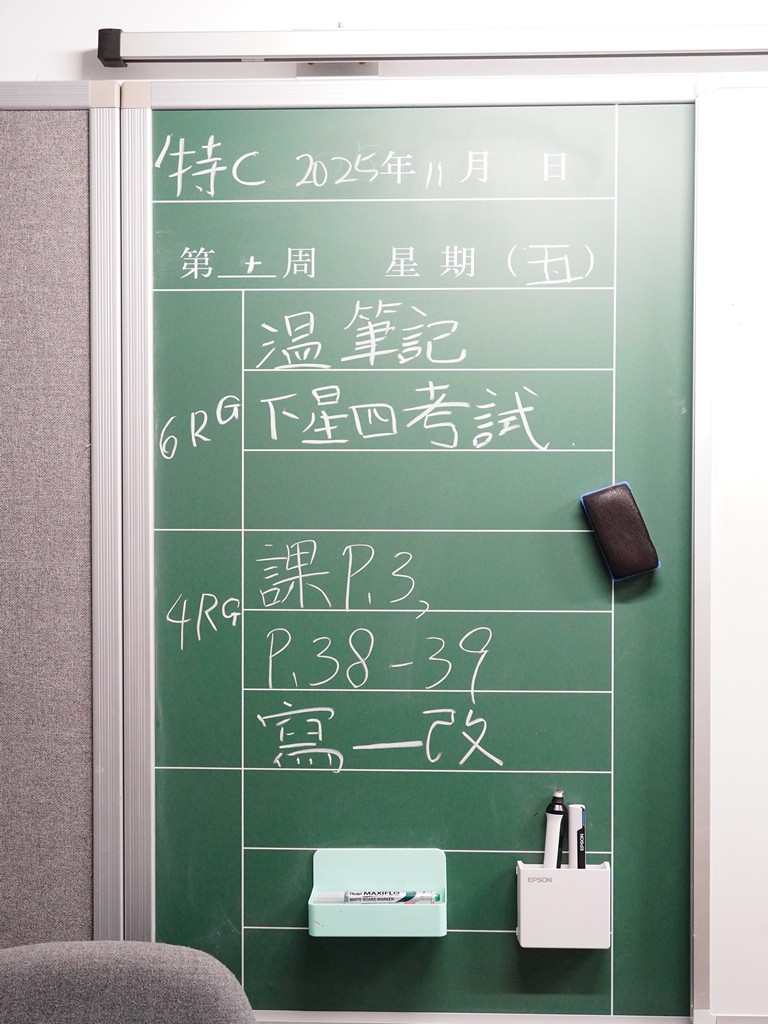 特C 2025年11月 日
第十周 星期(五)
6RG
温筆記
下星四考試
4RG
課P.3,
P.38-39
寫一改
Pentel MAXIFLO
WHITE BOARD MARKER
EPSON
EPSON